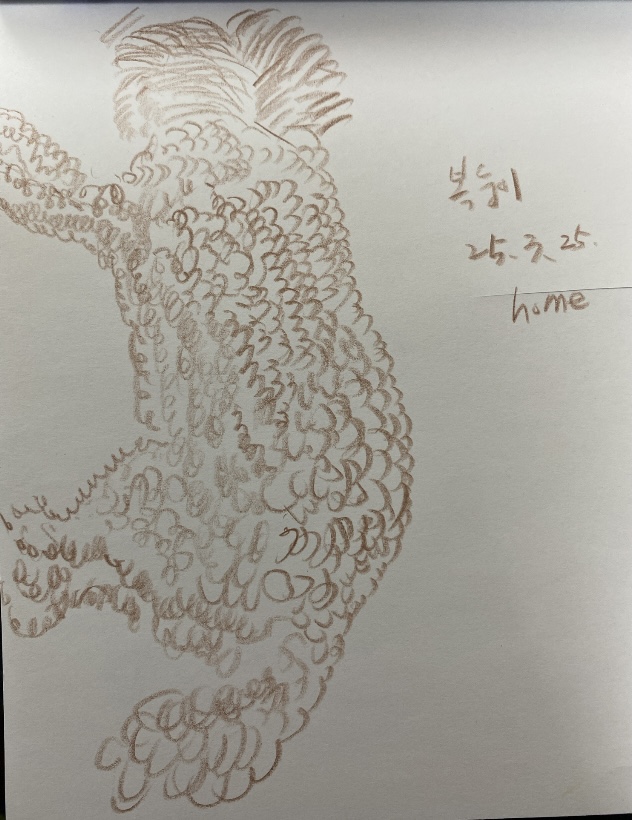 복둥이
25. 3. 25.
home